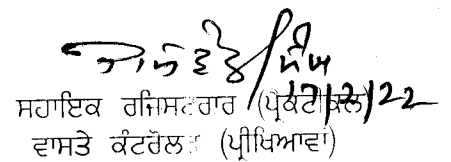 17/2/22
ਸਹਾਇਕ ਰਜਿਸਟਰਾਰ (ਪ੍ਰੈਕਟੀਕਲ)
ਵਾਸਤੇ ਕੰਟਰੋਲਰ (ਪ੍ਰੀਖਿਆਵਾਂ)